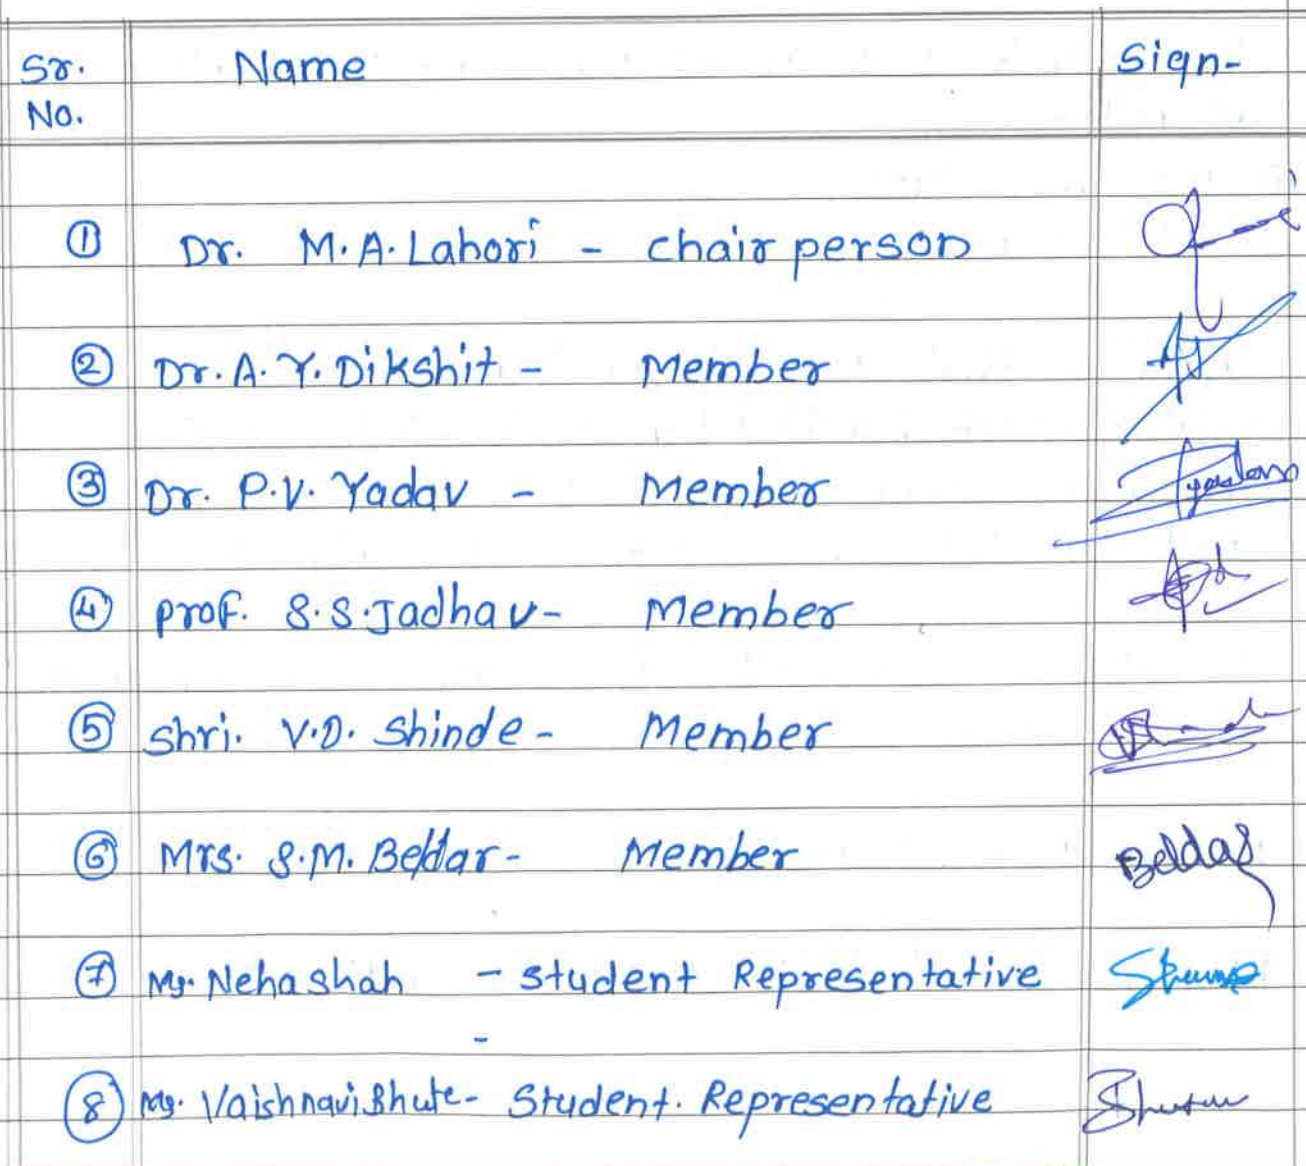 Sr. Name Sign-
No.
① Dr. M.A. Lahori - chairperson
② Dr. A. Y. Dikshit - Member
③ Dr. P.V. Yadav - Member
④ prof. S.S. Jadhav - Member
⑤ Shri. V.D. Shinde - Member
⑥ Mrs. S.M. Beldar - Member Beldar
⑦ Ms. Neha Shah - Student Representative
⑧ Ms. Vaishnavi Bhute - Student. Representative